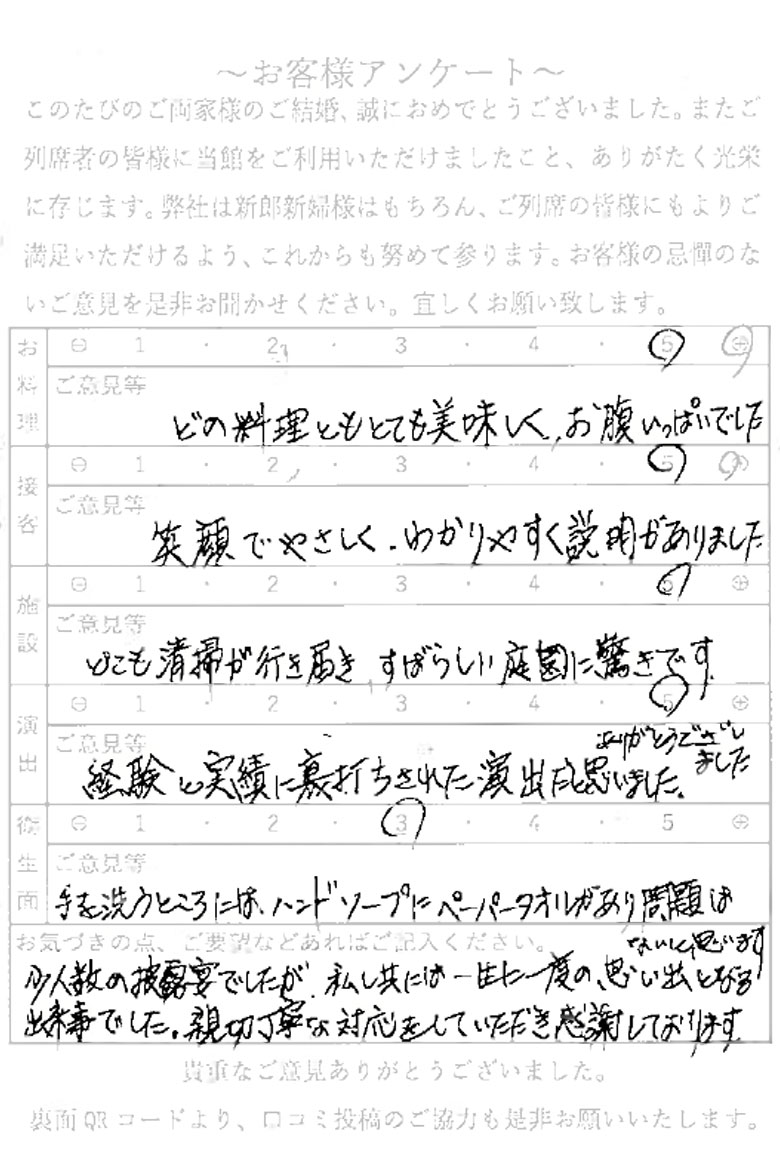 ～お客様アンケート～
このたびのご両家様のご結婚、誠におめでとうございました。またご
列席者の皆様に当館をご利用いただけましたこと、ありがたく光栄
に存じます。弊社は新郎新婦様はもちろん、ご列席の皆様にもよりご
満足いただけるよう、これからも努めて参ります。お客様の忌憚のな
いご意見を是非お聞かせください。宜しくお願い致します。
お料理
⊖ 1 ・ 2 ・ 3 ・ 4 ・ 5 ⊕
ご意見等
どの料理ともとても美味しく、お腹いっぱいでした
接客
⊖ 1 ・ 2 ・ 3 ・ 4 ・ 5 ⊕
ご意見等
笑顔でやさしく、わかりやすく説明がありました
施設
⊖ 1 ・ 2 ・ 3 ・ 4 ・ 5 ⊕
ご意見等
どこも清掃が行き届き すばらしい庭園に驚きです
演出
⊖ 1 ・ 2 ・ 3 ・ 4 ・ 5 ⊕
ご意見等
経験と実績に裏打ちされた演出だと思いました。
ありがとうござい
ました
衛生面
⊖ 1 ・ 2 ・ 3 ・ 4 ・ 5 ⊕
ご意見等
手を洗うところには、ハンドソープにペーパータオルがあり問題は
ないと思います
お気づきの点、ご要望などあればご記入ください。
少人数の披露宴でしたが、私し共には一生に一度の、思い出となる
出来事でした。親切丁寧な対応をしていただき感謝しております。
貴重なご意見ありがとうございました。
裏面QRコードより、口コミ投稿のご協力も是非お願いいたします。